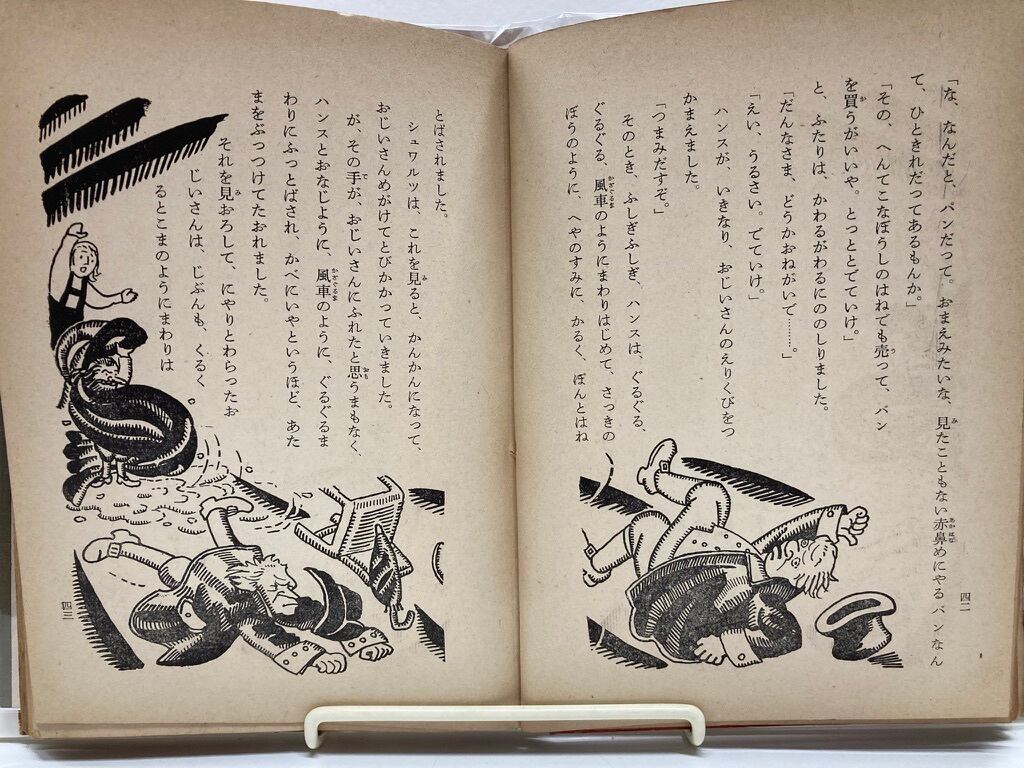 「な、なんだと、パンだって。おまえみたいな、見たこともない赤鼻めにやるパンなん
て、ひときれだってあるもんか。」
「その、へんてこなぼうしのはねでも売って、パン
を買うがいいや。とっととでていけ。」
と、ふたりは、かわるがわるにののしりました。
「だんなさま、どうかおねがいで……。」
「えい、うるさい。でていけ。」
ハンスが、いきなり、おじいさんのえりくびをつ
かまえました。
「つまみだすぞ。」
そのとき、ふしぎふしぎ、ハンスは、ぐるぐる、
ぐるぐる、風車のようにまわりはじめて、さっきの
ぼうのように、へやのすみに、かるく、ぽんとはね
四二
とばされました。
シュワルツは、これを見ると、かんかんになって、
おじいさんめがけてとびかかっていきました。
が、その手が、おじいさんにふれたと思うまもなく、
ハンスとおなじように、風車のように、ぐるぐるま
わりにふっとばされ、かべにいやというほど、あた
まをぶっつけてたおれました。
それを見おろして、にやりとわらったお
じいさんは、じぶんも、くるく
るとこまのようにまわりは
四三